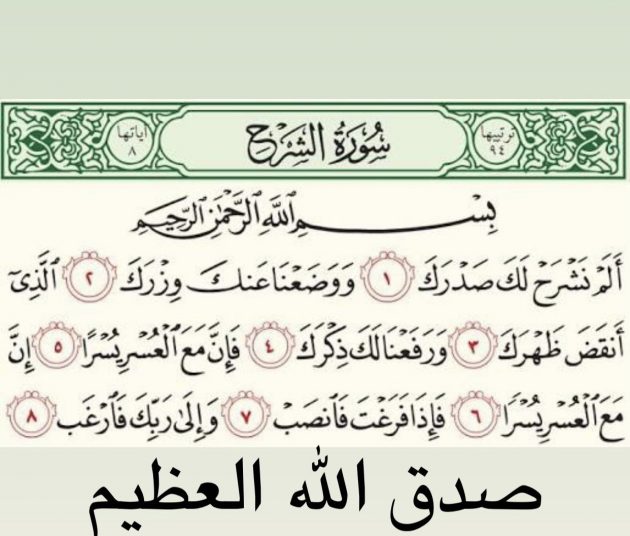 ترتيبها ٩٤ سُورَةُ الشَّرْحِ آياتها ٨
بِسْمِ اللَّهِ الرَّحْمَٰنِ الرَّحِيمِ
أَلَمْ نَشْرَحْ لَكَ صَدْرَكَ ١ وَوَضَعْنَا عَنكَ وِزْرَكَ ٢ ٱلَّذِىٓ
أَنقَضَ ظَهْرَكَ ٣ وَرَفَعْنَا لَكَ ذِكْرَكَ ٤ فَإِنَّ مَعَ ٱلْعُسْرِ يُسْرًا ٥ إِنَّ
مَعَ ٱلْعُسْرِ يُسْرًا ٦ فَإِذَا فَرَغْتَ فَٱنصَبْ ٧ وَإِلَىٰ رَبِّكَ فَٱرْغَب ٨
صدق الله العظيم